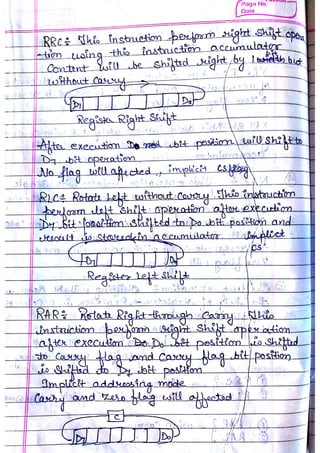 Page No.
Date
RRC : This instruction perform right shift opera
-tion using this instruction accumulator
Content will be shifted right by 1 bit but
without Carry
D7 D0
Register Right Shift
After execution D0 bit position will shift to
D7 bit operation
No flag will affected, implicit
RLC : Rotate Left without Carry This instruction
perform left shift operation after execution
D7 bit position shifted to D0 bit position and
result is stored in accumulator. Implict
CS
D7 D0
Register Left Shift
RAR : Rotate Right through Carry This
instruction perform right shift operation
after execution D0 bit position is shifted
to carry flag and Carry flag bit position
is shifted to D7 bit position
Implicit addressing mode
Carry and zero flag will affected
C
D7 D0